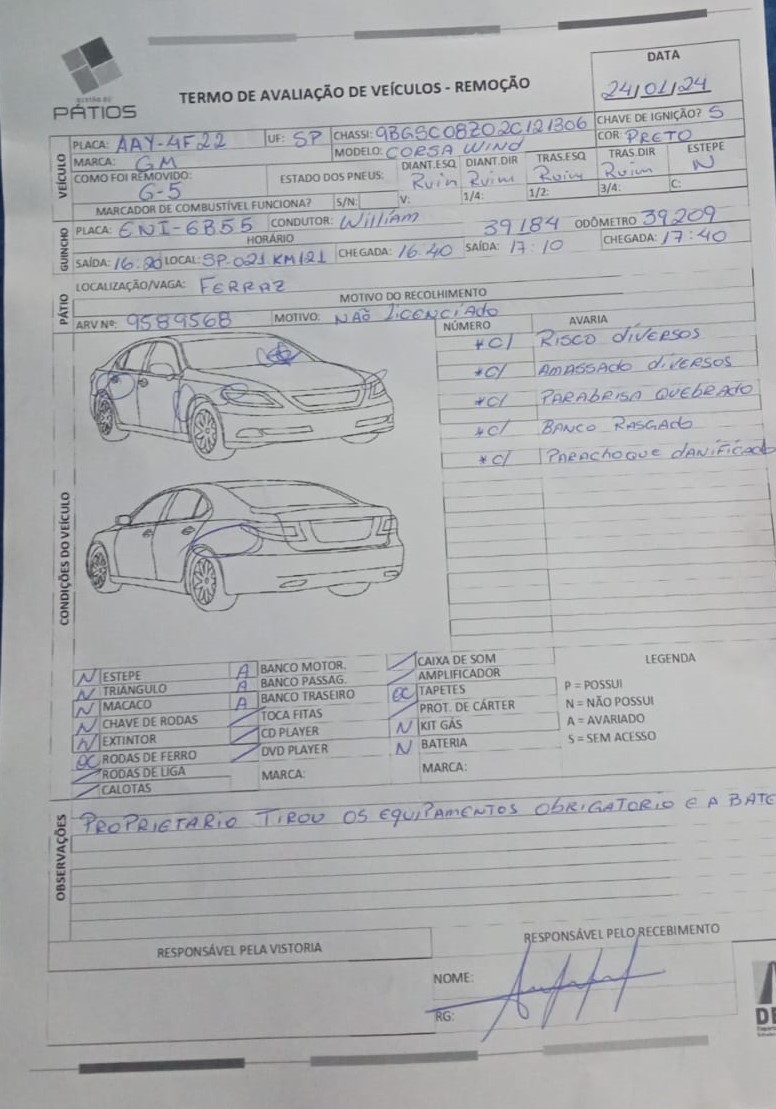 GESTÃO DE
PÁTIOS
TERMO DE AVALIAÇÃO DE VEÍCULOS - REMOÇÃO
DATA
24/01/24
VEÍCULO
PLACA: AAY-4F22 UF: SP CHASSI: 9BGSC08Z02C121306 CHAVE DE IGNIÇÃO? S
MARCA: GM MODELO: CORSA WIND COR: PRETO
COMO FOI REMOVIDO: G-5
ESTADO DOS PNEUS: DIANT.ESQ Ruin DIANT.DIR Ruim TRAS.ESQ Ruim TRAS.DIR Ruim ESTEPE N
MARCADOR DE COMBUSTÍVEL FUNCIONA? S/N: V: 1/4: 1/2: 3/4: C:
GUINCHO
PLACA: ENI-6B55 CONDUTOR: William 39184 ODÔMETRO 39209
HORÁRIO
SAÍDA: 16:20 LOCAL: SP-021 KM121 CHEGADA: 16.40 SAÍDA: 17:10 CHEGADA: 17:40
PÁTIO
LOCALIZAÇÃO/VAGA: FERRAZ
MOTIVO DO RECOLHIMENTO
ARV Nº: 9589568 MOTIVO: NÃO LICENCIADO
CONDIÇÕES DO VEÍCULO
NÚMERO AVARIA
*C/ RISCO diVERSOS
*C/ AMASSADO diVERSOS
*C/ PARABRISA QUEBRADO
*C/ BANCO RASGADO
*C/ PARACHOQUE dANIFICADO
N ESTEPE
N TRIÂNGULO
N MACACO
N CHAVE DE RODAS
N EXTINTOR
OC RODAS DE FERRO
RODAS DE LIGA
CALOTAS
A BANCO MOTOR.
A BANCO PASSAG.
A BANCO TRASEIRO
TOCA FITAS
CD PLAYER
DVD PLAYER
MARCA:
CAIXA DE SOM
AMPLIFICADOR
OC TAPETES
PROT. DE CÁRTER
N KIT GÁS
N BATERIA
MARCA:
LEGENDA
P = POSSUI
N = NÃO POSSUI
A = AVARIADO
S = SEM ACESSO
OBSERVAÇÕES
PROPRIETARIO TIROU OS EQUIPAMENTOS OBRIGATORIO E A BATE
RESPONSÁVEL PELA VISTORIA
RESPONSÁVEL PELO RECEBIMENTO
NOME:
RG: